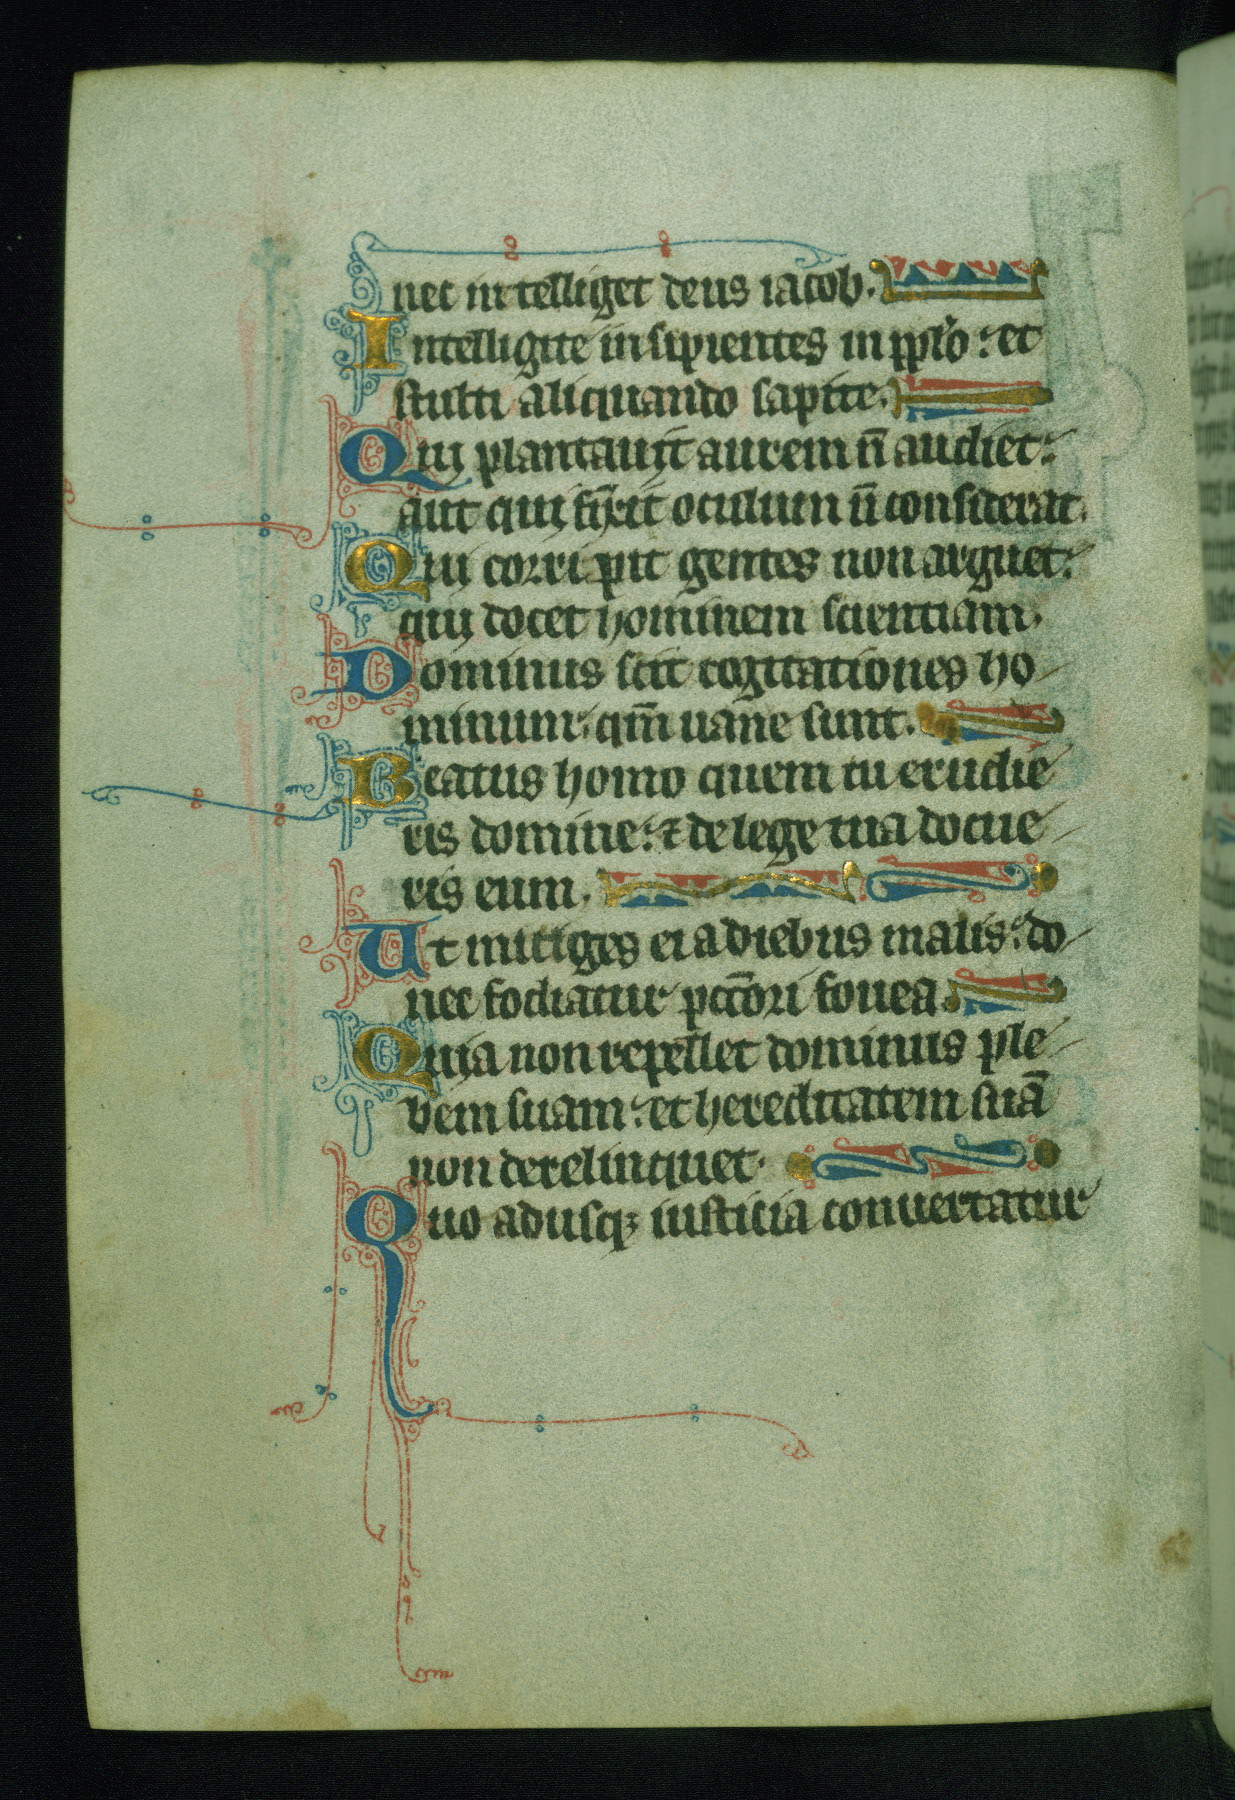 nec intelliget deus iacob.
Intelligite insipientes in pplo : et
stulti aliquando sapite.
Qui plantauit aurem nō audiet :
aut qui finxit oculum nō considerat.
Qui corripit gentes non arguet :
qui docet hominem scientiam.
Dominus scit cogitationes ho
minum : qm̄ uane sunt.
Beatus homo quem tu erudie
ris domine : ⁊ de lege tua docue
ris eum.
Ut mitiges ei a diebus malis : do
nec fodiatur pctōri fouea.
Quia non repellet dominus ple
bem suam : et hereditatem suā
non derelinquet.
Quo adusqꝫ iusticia conuertatur